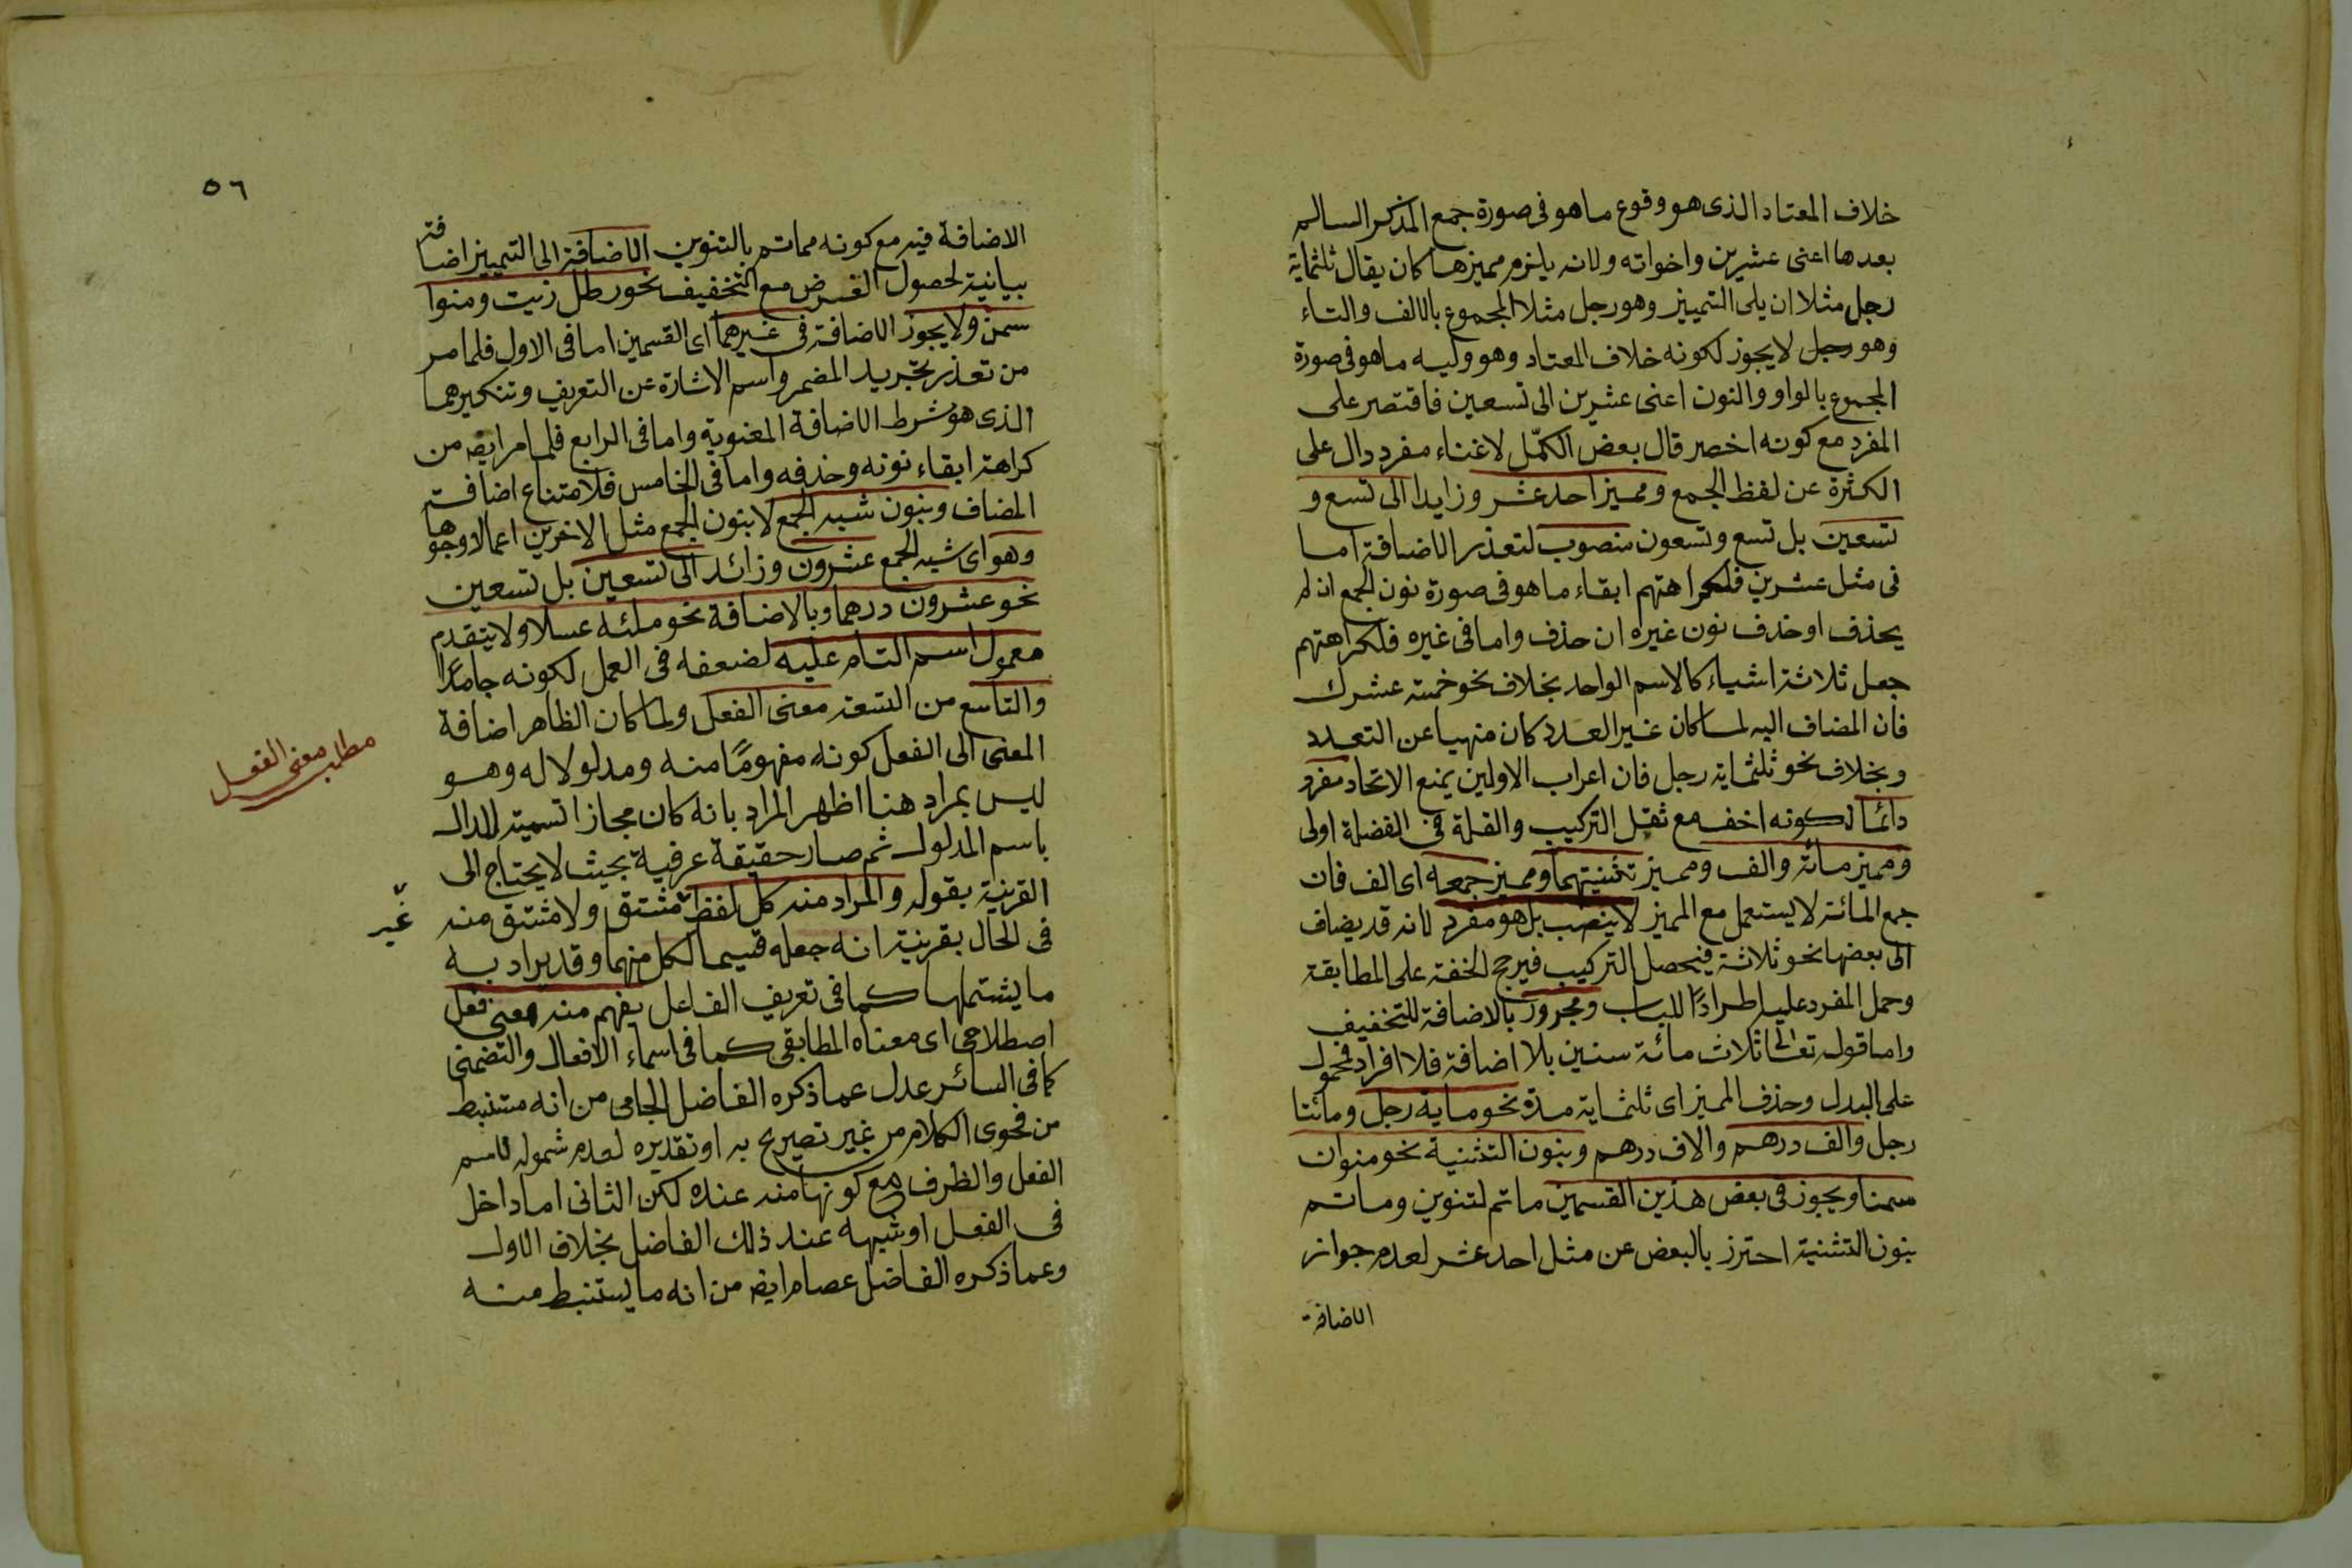 خلاف المعتاد الذى هو وقوع ما هو فى صورة جمع المذكر السالم
بعدها اعنى عشرين واخواته ولانه يلزم مميزها كان يقال ثلثماية
رجل مثلا ان يلى التمييز وهو رجل مثلا المجموع بالالف والتاء
وهو رجل لا يجوز لكونه خلاف المعتاد وهو وليه ما هو فى صورة
المجموع بالواو والنون اعنى عشرين الى تسعين فاقتصر على
المفرد مع كونه اخصر قال بعض الكمّل لاغناء مفرد دال على
الكثرة عن لفظ الجمع ومميز احد عشر وزايدا الى تسع و
تسعين بل تسع وتسعون منصوب لتعذر الاضافة اما
فى مثل عشرين فلكراهتهم ابقاء ما هو فى صورة نون الجمع ان لم
يحذف او حذف نون غيره ان حذف واما فى غيره فلكراهتهم
جعل ثلاثة اشياء كالاسم الواحد بخلاف نحو خمسة عشرك
فان المضاف اليه لما كان غير العدد كان منهيا عن التعدد
وبخلاف نحو ثلثماية رجل فان اعراب الاولين يمنع الاتحاد مفرد
دائما لكونه اخف مع ثقل التركيب والقلة فى الفضلة اولى
ومميز مائة والف ومميز تثنيتهما ومميز جمعه اى الف فان
جمع المائة لا يستعمل مع المميز لا ينصب بل هو مفرد لانه قد يضاف
الى بعضها نحو ثلاثة فيحصل التركيب فيرجح الخفة على المطابقة
وحمل المفرد عليه اطرادًا للباب ومجرور بالاضافة للتخفيف
واما قوله تعالى ثلاث مائة سنين بلا اضافة فلا افراد فمحمول
على البدل وحذف المميز اى ثلثماية مدة نحو ماية رجل ومائتا
رجل والف درهم والاف درهم وبنون التثنية نحو منوان
سمنا ويجوز فى بعض هذين القسمين ما تم لتنوين وما تم
بنون التثنية احترز بالبعض عن مثل احد عشر لعدم جواز
الاضافة
٥٦
الاضافة فيه مع كونه مما تم بالتنوين الاضافة الى التمييز اضافة
بيانية لحصول الغرض مع التخفيف نحو رطل زيت ومنوا
سمن ولا يجوز الاضافة فى غيرهما اى القسمين اما فى الاول فلما مر
من تعذر تجريد المضمر واسم الاشارة عن التعريف وتنكيرهما
الذى هو شرط الاضافة المعنوية واما فى الرابع فلما مر ايضه من
كراهة ابقاء نونه وحذفه واما فى الخامس فلامتناع اضافة
المضاف وبنون شبه الجمع لا بنون الجمع مثل الاخرين اعمالا وجوها
وهو اى شبه الجمع عشرون وزائد الى تسعين بل تسعين
نحو عشرون درهما وبالاضافة نحو ملئه عسلا ولا يتقدم
معمول اسم التام عليه لضعفه فى العمل لكونه جامدًا
والتاسع من التسعة معنى الفعل ولما كان الظاهر اضافة
المعنى الى الفعل كونه مفهومًا منه ومدلولا له وهو
ليس بمراد هنا اظهر المراد بانه كان مجازا تسمية للدال
باسم المدلول ثم صار حقيقة عرفية بحيث لا يحتاج الى
القرينة بقوله والمراد منه كل لفظ مشتق ولا مشتق منه
فى الحال بقرينة انه جعله قسيما لكل منهما وقد يراد به
ما يشتملها كما فى تعريف الفاعل يفهم منه معنى فعل
اصطلاحى اى معناه المطابقى كما فى اسماء الافعال والتضمنى
كما فى السائر عدل عما ذكره الفاضل الجامى من انه مستنبط
من فحوى الكلام من غير تصريح به او تقديره لعدم شموله لاسم
الفعل والظرف مع كونهما منه عنده لكن الثانى اما داخل
فى الفعل او شبهه عند ذلك الفاضل بخلاف الاول
وعما ذكره الفاضل عصام ايضه من انه ما يستنبط منه
مطلب معنى الفعل
غير